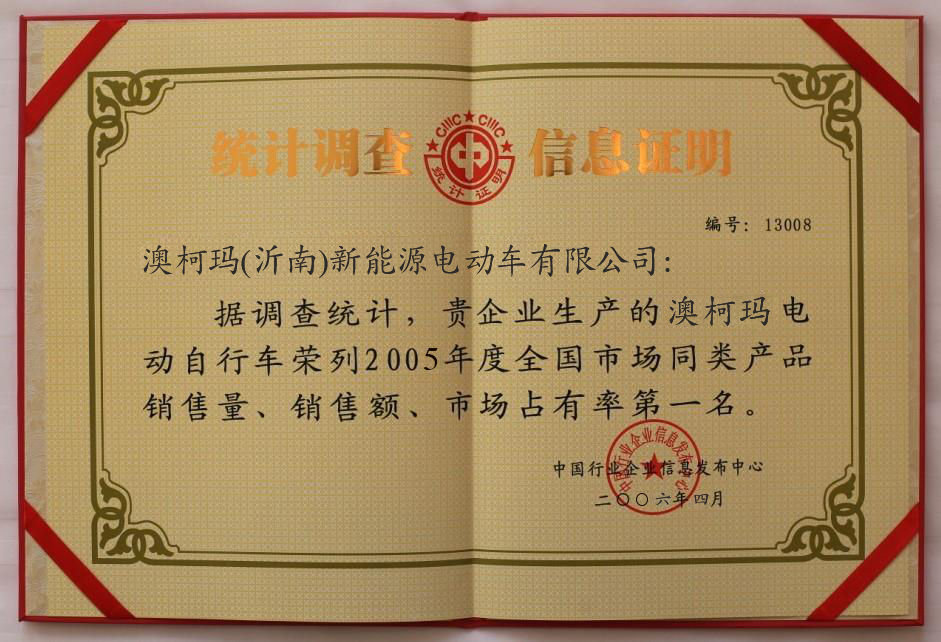 统计调查 信息证明
CIIIC CIIIC
中
统计证明
编号：13008
澳柯玛(沂南)新能源电动车有限公司:
据调查统计，贵企业生产的澳柯玛电
动自行车荣列2005年度全国市场同类产品
销售量、销售额、市场占有率第一名。
中国行业企业信息发布中心
中国行业企业信息发布中心
二〇〇六年四月